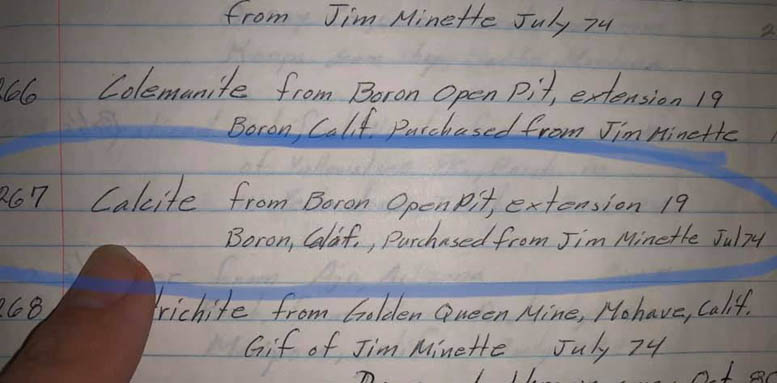 from Jim Minette July 74
266 Colemanite from Boron Open Pit, extension 19
Boron, Calif. Purchased from Jim Minette
267 Calcite from Boron Open Pit, extension 19
Boron, Calif., Purchased from Jim Minette Jul 74
268 richite from Golden Queen Mine, Mohave, Calif.
Gif of Jim Minette July 74